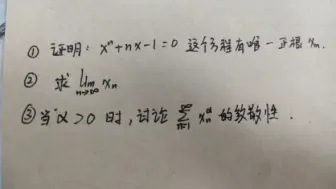 ① 证明: xⁿ+nx-1=0 这个方程有唯一正根 xₙ.
② 求 lim_{n→∞} xₙ
③ 当 α>0 时, 讨论 ∑_{n=1}^{∞} xₙ^α 的敛散性.